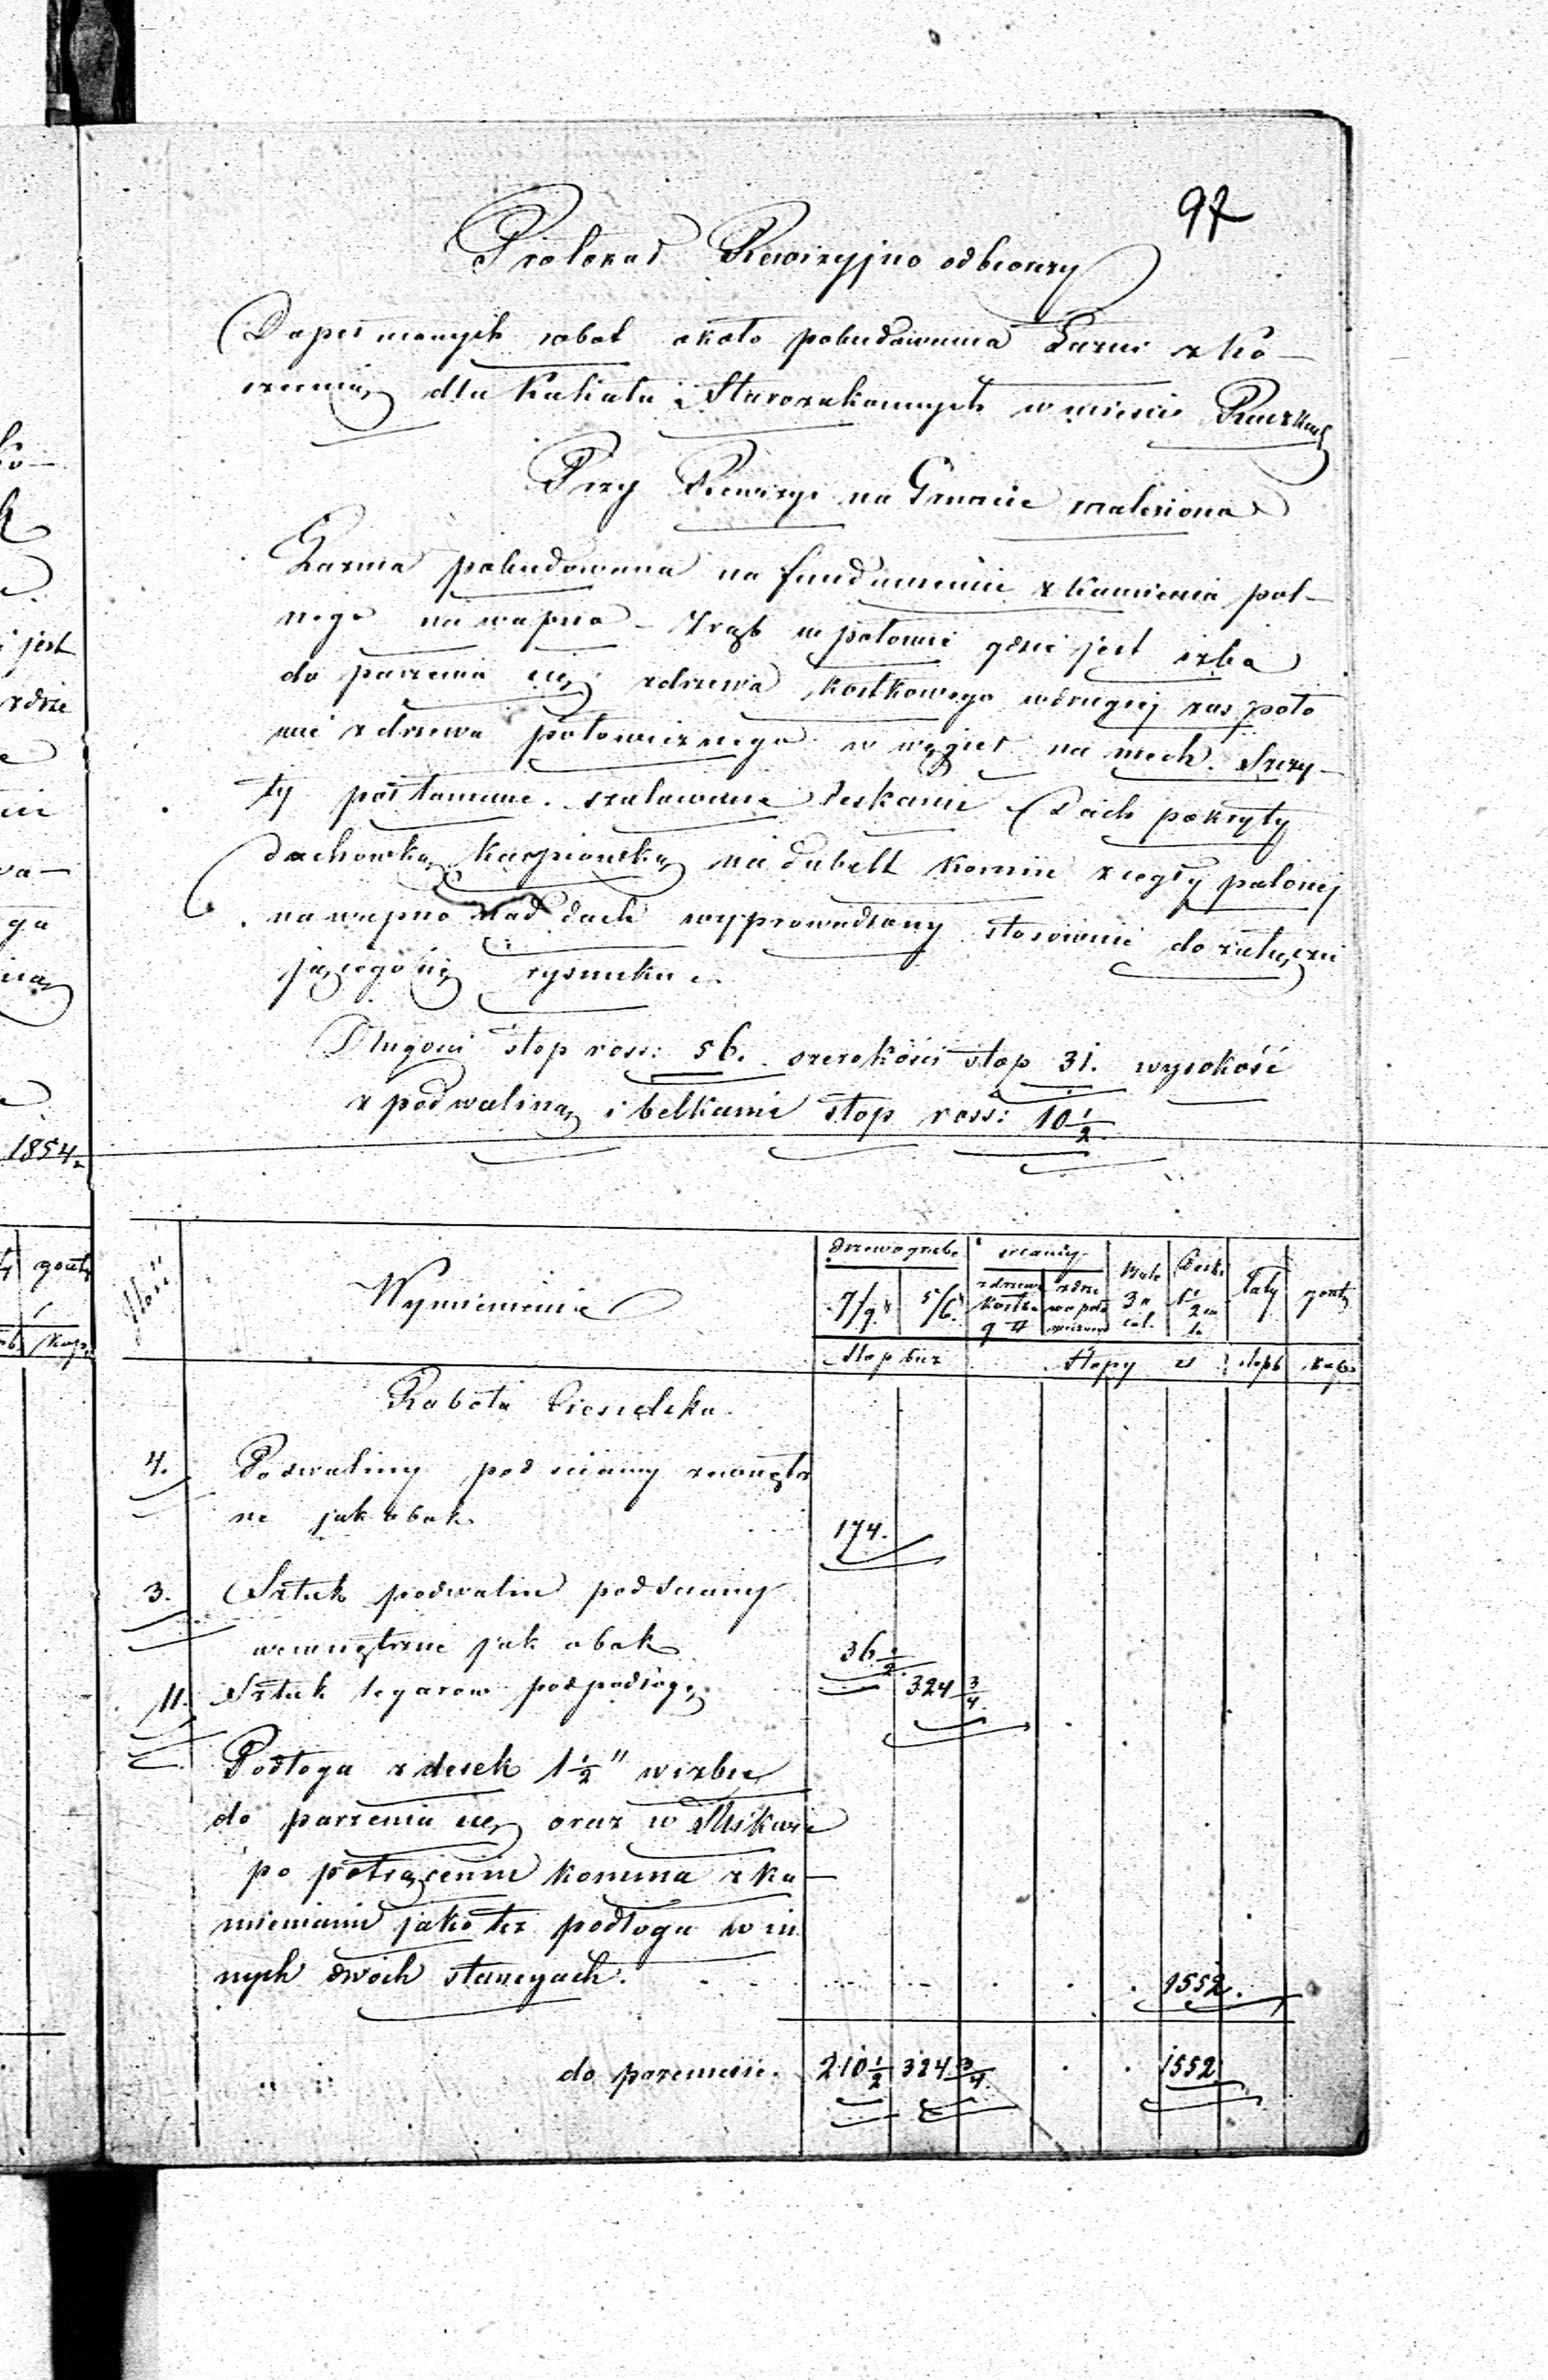 97
Protokuł Rewizyjno odbiorczy
Dopełnionych robot około pobudowania Łazni z Ko-
szernią dla Kahału Starozakonnych w mieście Raczkach
Przy Rewizyi na Gruncie znaleziono
Łaznia pobudowana na fundamencie z kamienia pol-
nego na wapno – Zrąb w połowie gdzie jest izba
do parzenia się zdrzewa kostkowego wdrugiej zas poło
wie z drzewa połowicznego w węgieł na mech. Szczy-
ty szalowane deskami Dach pokryty
dachowką karpiowką na dubelt komin z cegły palonej
na wapno nad dach wyprowadzony stosownie do załącza
jącego się rysunku.
Długosci stop ross: 56. szerokości stop 31. wysokość
z podwaliną i belkami stop ross: 10 1/2
i jest
1854.
gonty
kop.
Ilość
Wymienienie
drzewo grube
sciany
Bale
Deski
Łaty
gonty
7/9"
5/6"
z drzewa
kostko
9 "
z drze
wa poło
wiczne
3"
cal.
1 1/2 ca
la
Stop bież
Stopy
stop b
kop
Robota Ciesielska
4. Podwaliny pod sciany zewnętrz
ne jak obok 174.
3. Sztuk podwalin pod sciany
wewnętrzne jak obok 36 1/2
11. Sztuk legarow pod podłogę 324 3/4
Podłoga z desek 1 1/2" w izbie
do parzenia się oraz w Mikwie
po potrąceniu komina z ka-
mieniami jako też podłoga w in
nych dwóch stancyach. 1552.
do przeniesie. 210 1/2 324 3/4 1552